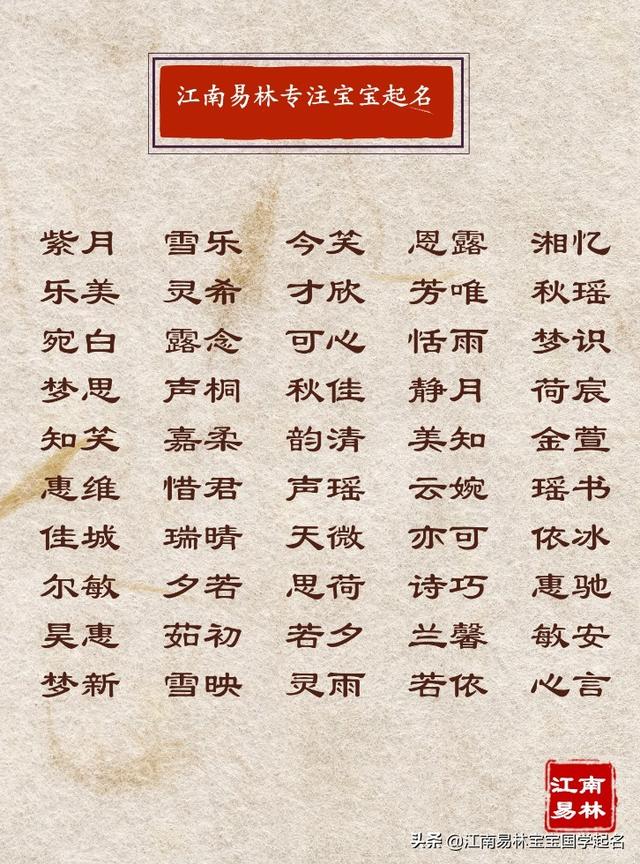 江南易林专注宝宝起名
紫月 雪乐 今笑 恩露 湘忆
乐美 灵希 才欣 芳唯 秋瑶
宛白 露念 可心 恬雨 梦识
梦思 声桐 秋佳 静月 荷宸
知笑 嘉柔 韵清 美知 金萱
惠维 惜君 声瑶 云婉 瑶书
佳城 瑞晴 天微 亦可 依冰
尔敏 夕若 思荷 诗巧 惠驰
昊惠 茹初 若夕 兰馨 敏安
梦新 雪映 灵雨 若依 心言
江南
易林
头条 @江南易林宝宝国学起名